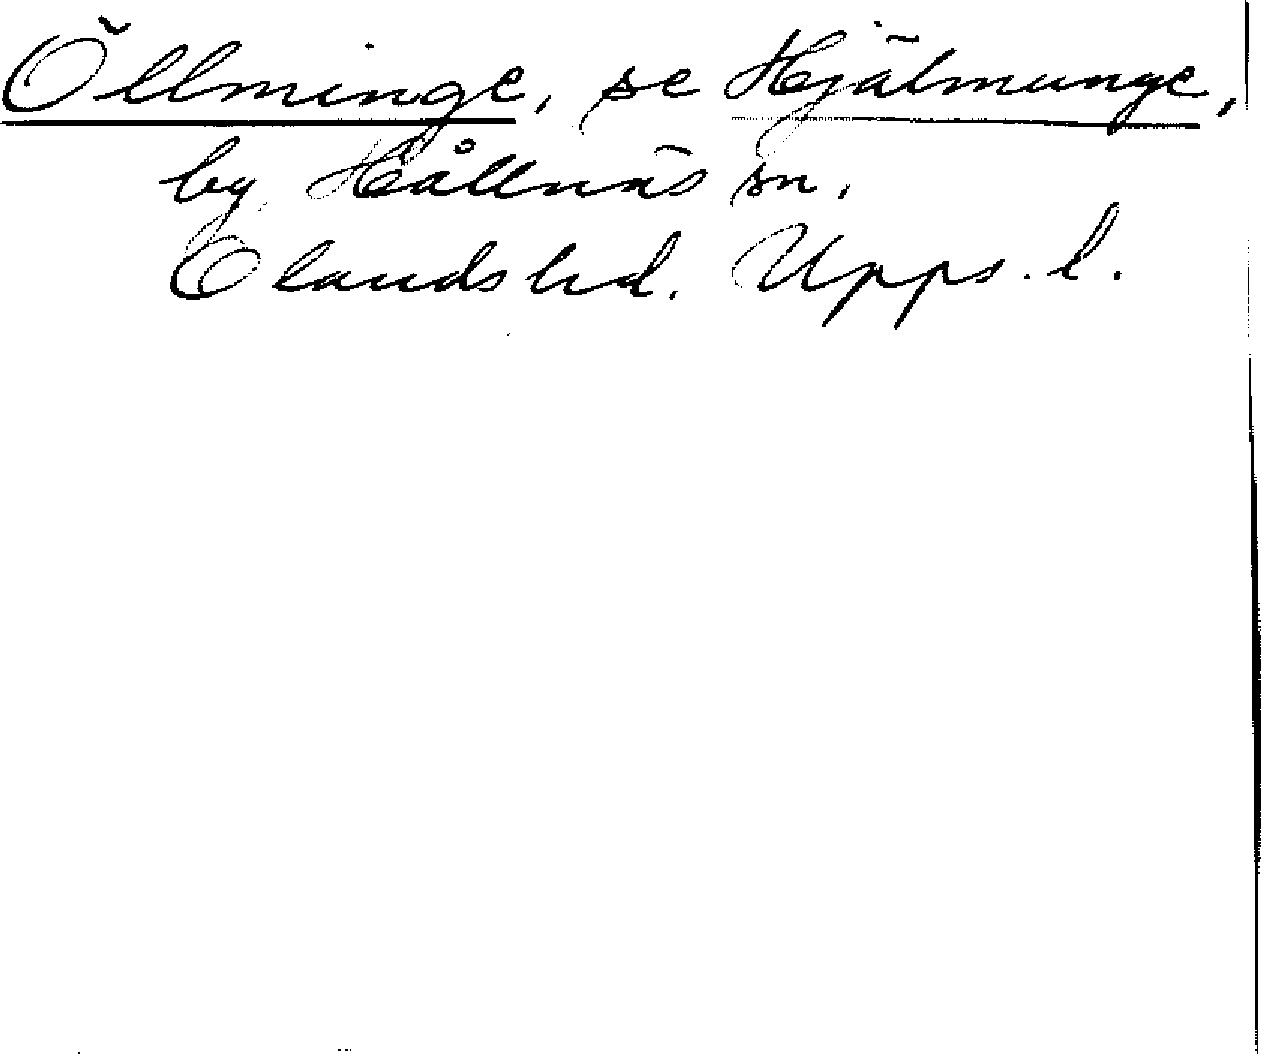 Öllminge, se Hjälmunge,
by Hållnäs sn.
Olands hd. Upps. l.